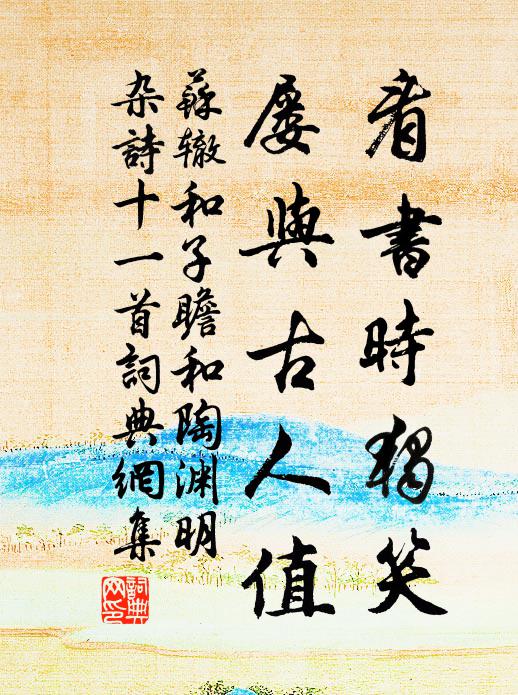 看書時獨笑
屡與古人值
蘇辙和子瞻和陶渊明
杂詩十一首詞典網集
詞典